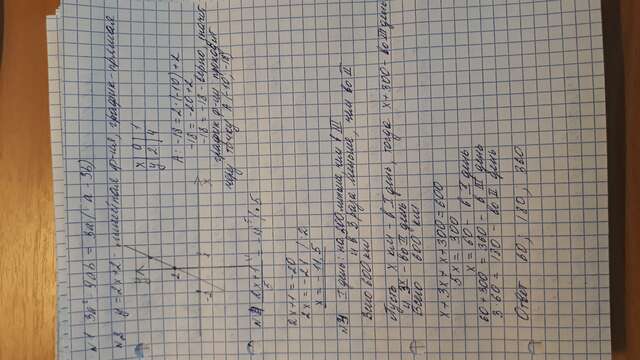 №1 3a² - 9ab = 3a(a - 3b)
№2 y = 2x+2 - линейная ф-ия, график - прямая
x | 0 | 1
y | 2 | 4
А: -18 = 2·(-10)+2
-18 = -20+2
-18 = -18 - верно, значит
график ф-ии проходит
через точку А (-10; -18)
2x+1 = -20
2x = -21 /:2
x = -11,5
I день: на 300 меньше, чем в III
и в 3 раза меньше, чем во II
Всего 600 км
Пусть x км - в I день, тогда x+300 - во III день
и 3x - во II день
Всего 600 км
x+3x+x+300=600
5x = 300
x = 60 - в I день
60+300 = 360 - в III день
3·60 = 180 - во II день
Ответ 60; 180; 360